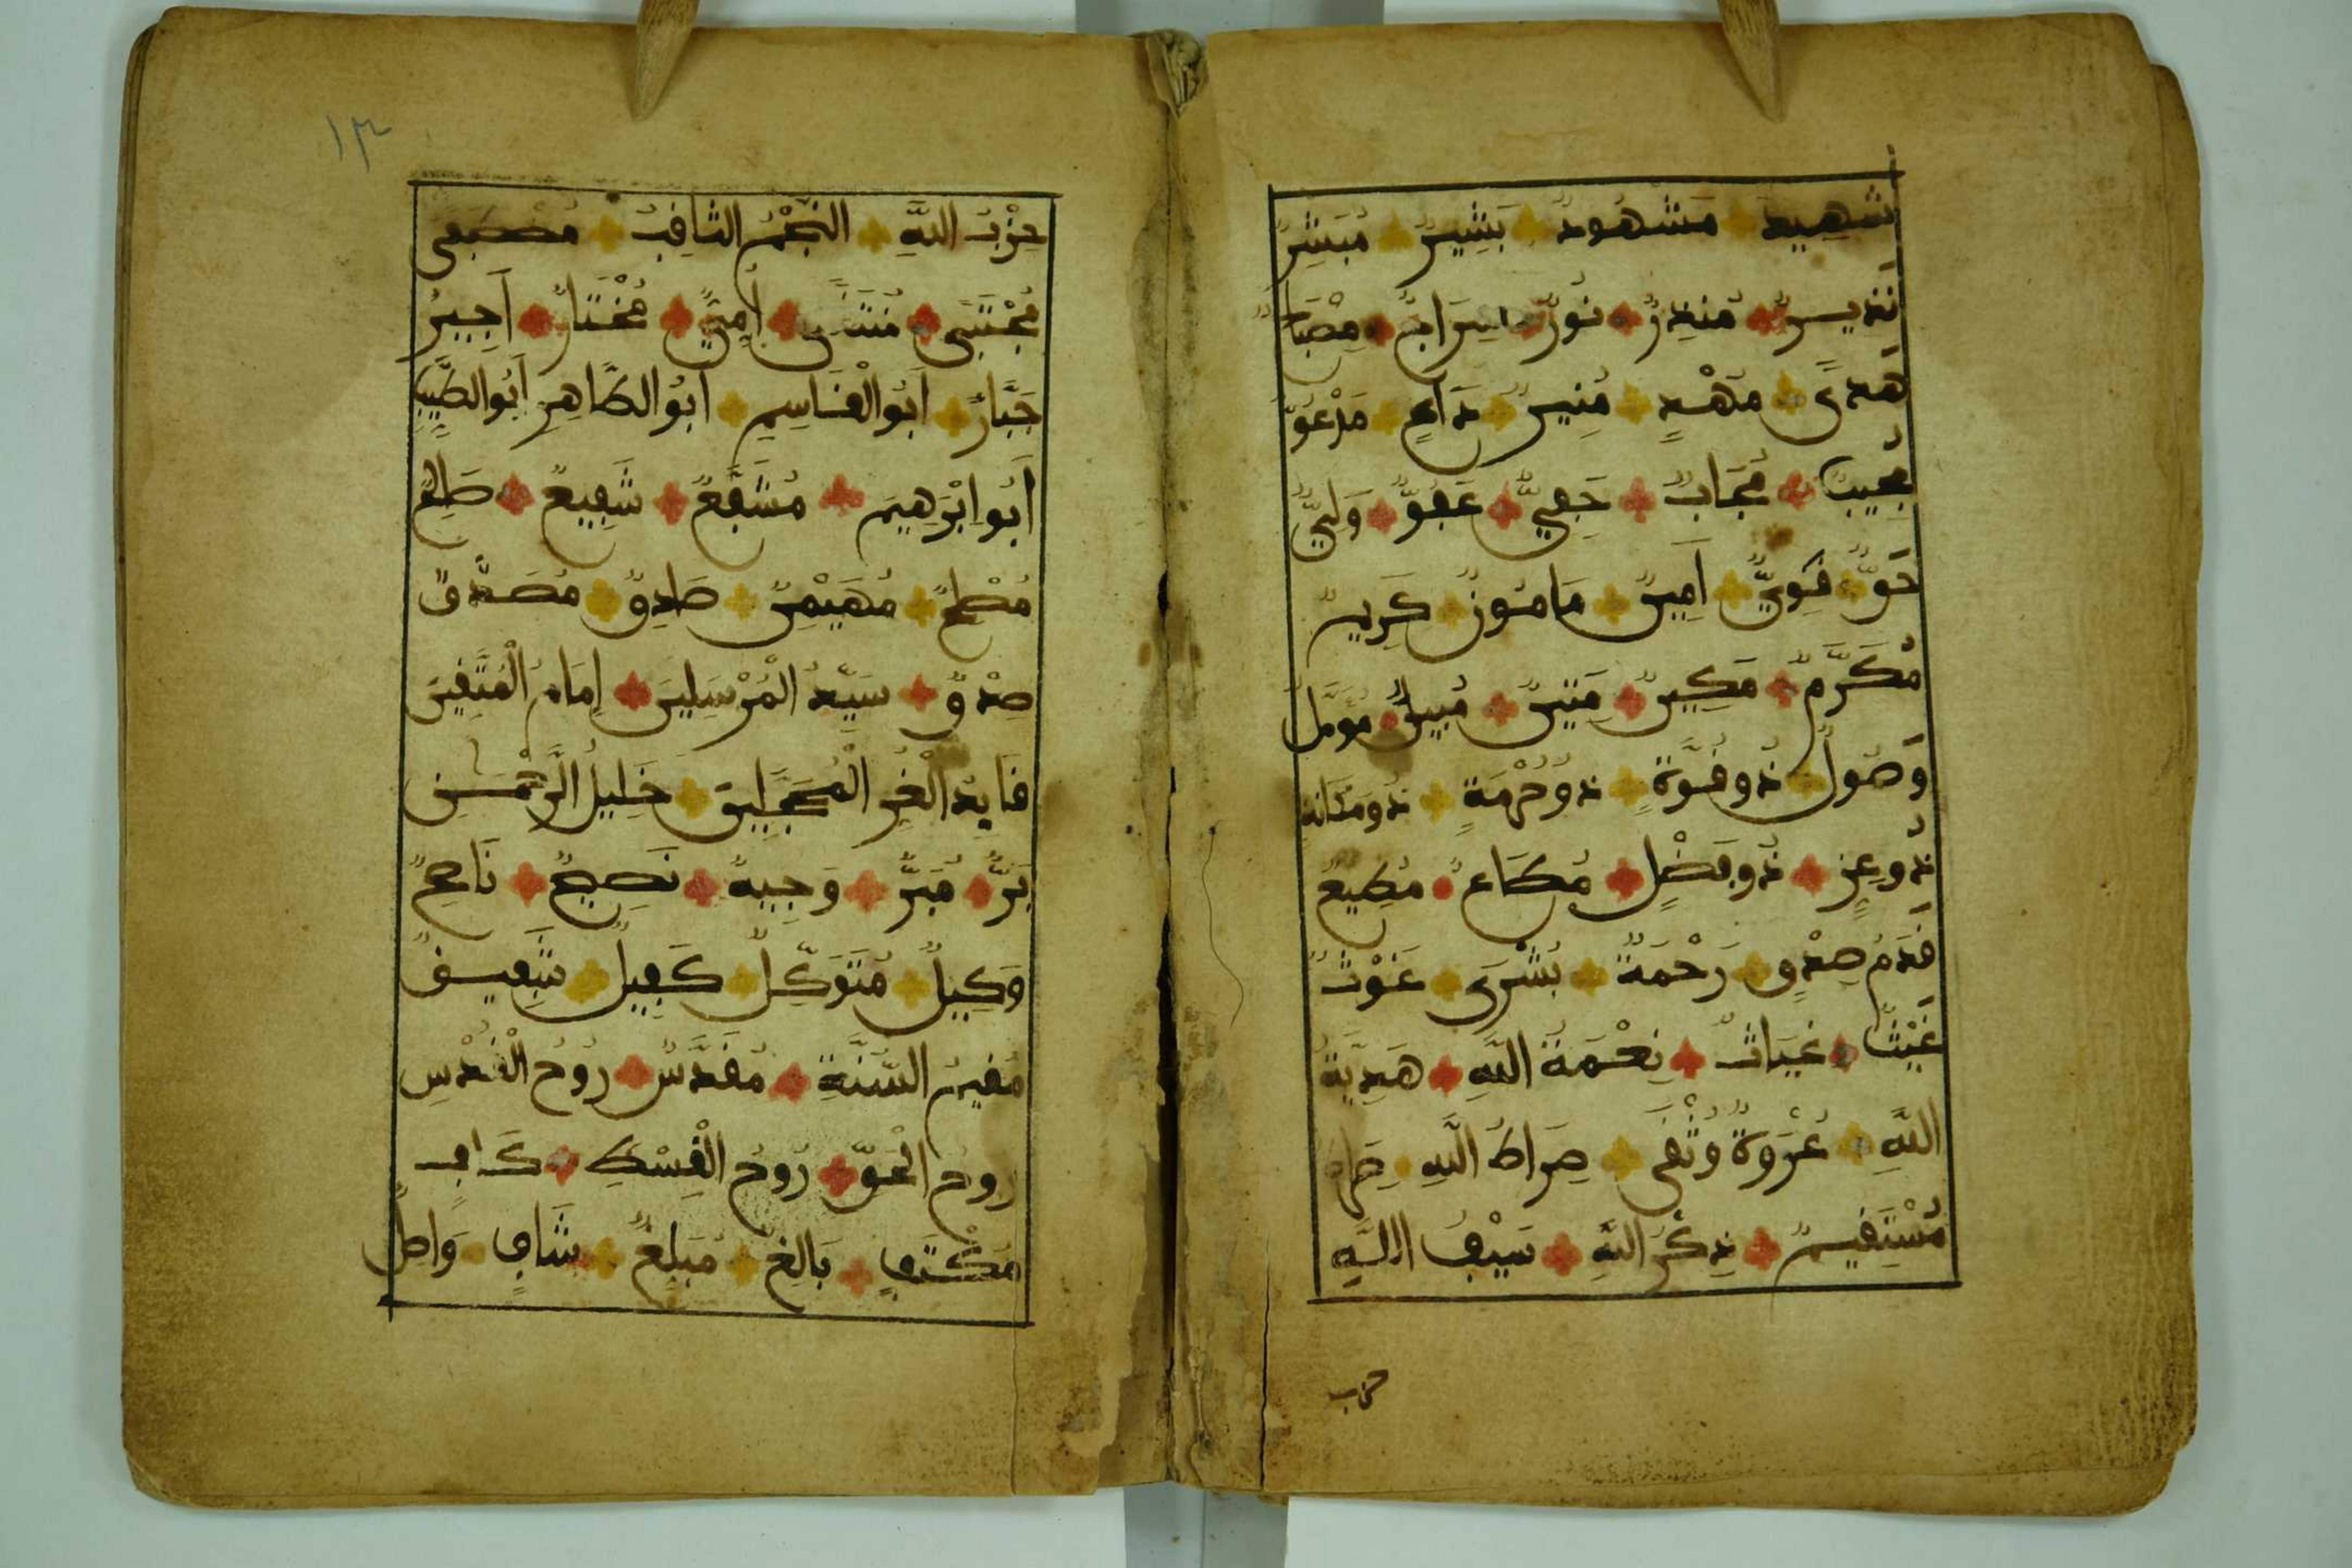 شَهِيدٌ مَشْهُودٌ بَشِيرٌ مُبَشِّرٌ
نَذِيرٌ مُنْذِرٌ نُورٌ سِرَاجٌ مِصْبَاحٌ
هُدًى مَهْدِيٌّ مُنِيرٌ دَاعٍ مَدْعُوٌّ
مُجِيبٌ مُجَابٌ حَفِيٌّ عَفُوٌّ وَلِيٌّ
حَقٌّ قَوِيٌّ أَمِينٌ مَامُونٌ كَرِيمٌ
مُكَرَّمٌ مَكِينٌ مَتِينٌ مُبِينٌ مُؤَمَّلٌ
وَصُولٌ ذُو قُوَّةٍ ذُو حُرْمَةٍ ذُو مَكَانَةٍ
ذُو عِزٍّ ذُو فَضْلٍ مُطَاعٌ مُطِيعٌ
قَدَمُ صِدْقٍ رَحْمَةٌ بُشْرَى غَوْثٌ
غَيْثٌ غِيَاثٌ نِعْمَةُ اللَّهِ هَدِيَّةُ
اللَّهِ عُرْوَةٌ وُثْقَى صِرَاطُ اللَّهِ صِرَاطٌ
مُسْتَقِيمٌ ذِكْرُ اللَّهِ سَيْفُ اللَّهِ
حزب
١٣
حِزْبُ اللَّهِ النَّجْمُ الثَّاقِبُ مُصْطَفَى
مُجْتَبَى مُنْتَقَى أُمِّيٌّ مُخْتَارٌ أَجِيرٌ
جَبَّارٌ أَبُو الْقَاسِمِ أَبُو الطَّاهِرِ أَبُو الطَّيِّبِ
أَبُو إِبْرَهِيمَ مُشَفَّعٌ شَفِيعٌ صَالِحٌ
مُصْلِحٌ مُهَيْمِنٌ صَادِقٌ مُصَدَّقٌ
صِدْقٌ سَيِّدُ الْمُرْسَلِينَ إِمَامُ الْمُتَّقِينَ
قَايِدُ الْغُرِّ الْمُحَجَّلِينَ خَلِيلُ الرَّحْمَنِ
بَرٌّ مُبَرٌّ وَجِيهٌ نَصِيحٌ نَاصِحٌ
وَكِيلٌ مُتَوَكِّلٌ كَفِيلٌ شَفِيقٌ
مُقِيمُ السُّنَّةِ مُقَدَّسٌ رُوحُ الْقُدُسِ
رُوحُ الْحَقِّ رُوحُ الْقِسْطِ كَافٍ
مُكْتَفٍ بَالِغٌ مُبَلِّغٌ شَافٍ وَاصِلٌ